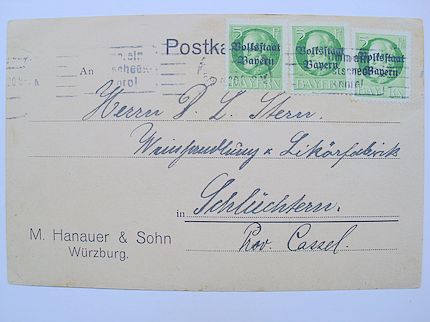 Postka
Volksstaat Bayern
Volksstaat Bayern
Volksstaat Bayern
5
BAYERN
An
Herrn D. L. Stern.
Weinhandlung & Likörfabrik
in Schlüchtern.
Prov. Cassel.
M. Hanauer & Sohn
Würzburg.